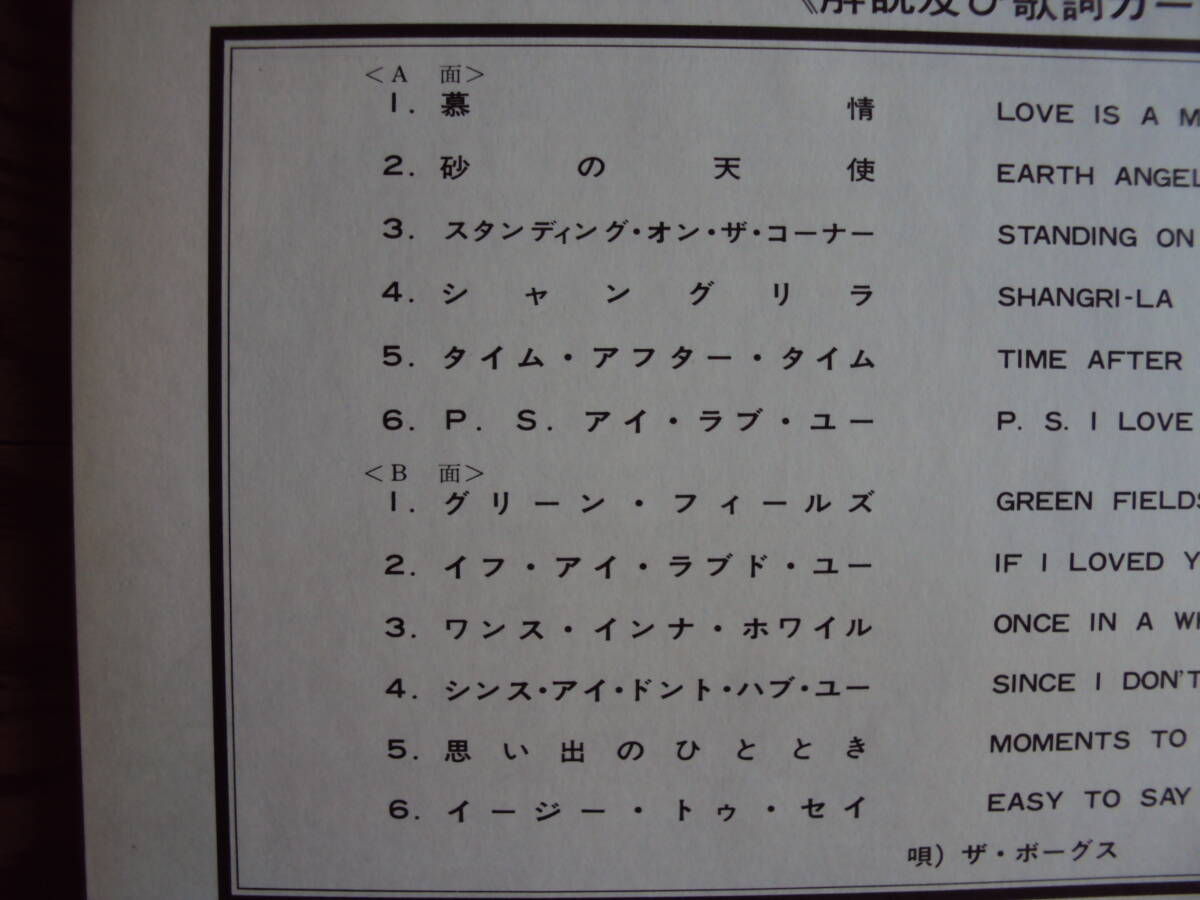 《解説及び歌詞カー
<A 面>
1. 慕情 LOVE IS A M
2. 砂の天使 EARTH ANGEL
3. スタンディング・オン・ザ・コーナー STANDING ON
4. シャングリラ SHANGRI-LA
5. タイム・アフター・タイム TIME AFTER
6. P. S. アイ・ラブ・ユー P. S. I LOVE
<B 面>
1. グリーン・フィールズ GREEN FIELDS
2. イフ・アイ・ラブド・ユー IF I LOVED Y
3. ワンス・インナ・ホワイル ONCE IN A WH
4. シンス・アイ・ドント・ハブ・ユー SINCE I DON'T
5. 思い出のひととき MOMENTS TO
6. イージー・トゥ・セイ EASY TO SAY
唄) ザ・ボーグス